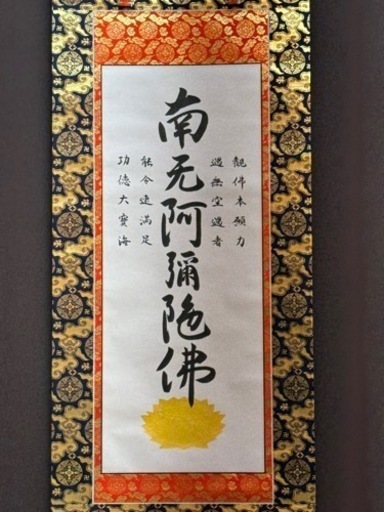 觀佛本願力
遇無空過者
南无阿彌陀佛
能令速滿足
功德大寶海